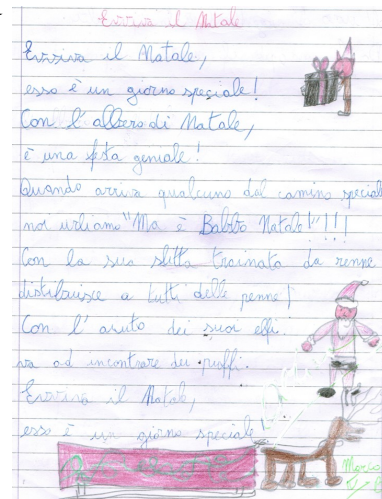 Evviva il Natale
Evviva il Natale,
esso è un giorno speciale!
Con l'albero di Natale,
è una festa geniale!
Quando arriva qualcuno dal camino speciale
noi urliamo "Ma è Babbo Natale!"!!!
Con la sua slitta trainata da renne
distribuisce a tutti delle penne!
Con l'aiuto dei suoi elfi.
va ad incontrare dei puffi.
Evviva il Natale,
esso è un giorno speciale!